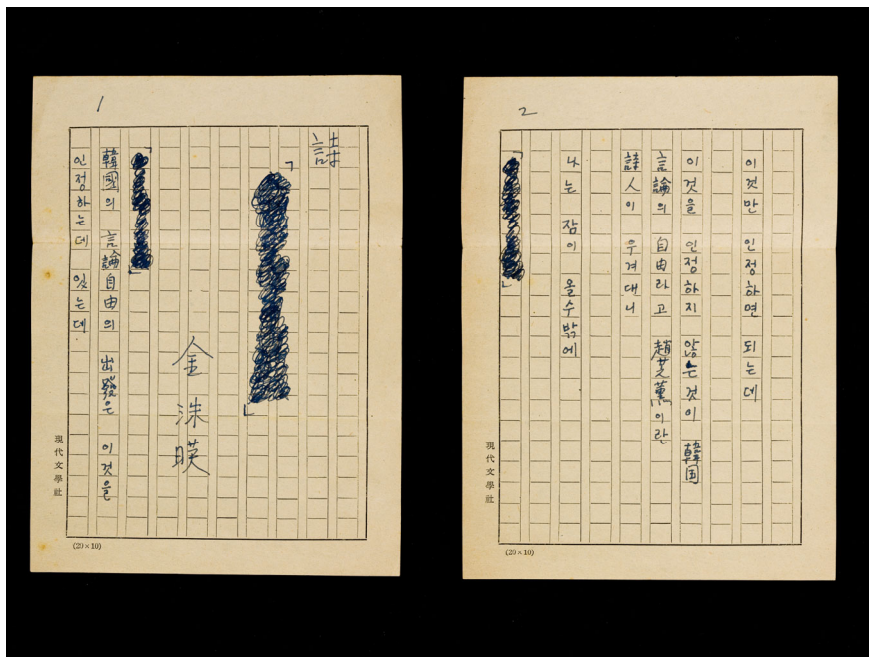 1
詩
「
」
金洙暎
「
」
韓國의 言論自由의 出發은 이것을
인정하는데 있는데
現代文學社
(20×10)
2
이것만 인정하면 되는데
이것을 인정하지 않는것이 韓国
言論의 自由라고 趙芝薰이란
詩人이 우겨대니
나는 잠이 올수밖에
「
」
現代文學社
(20×10)